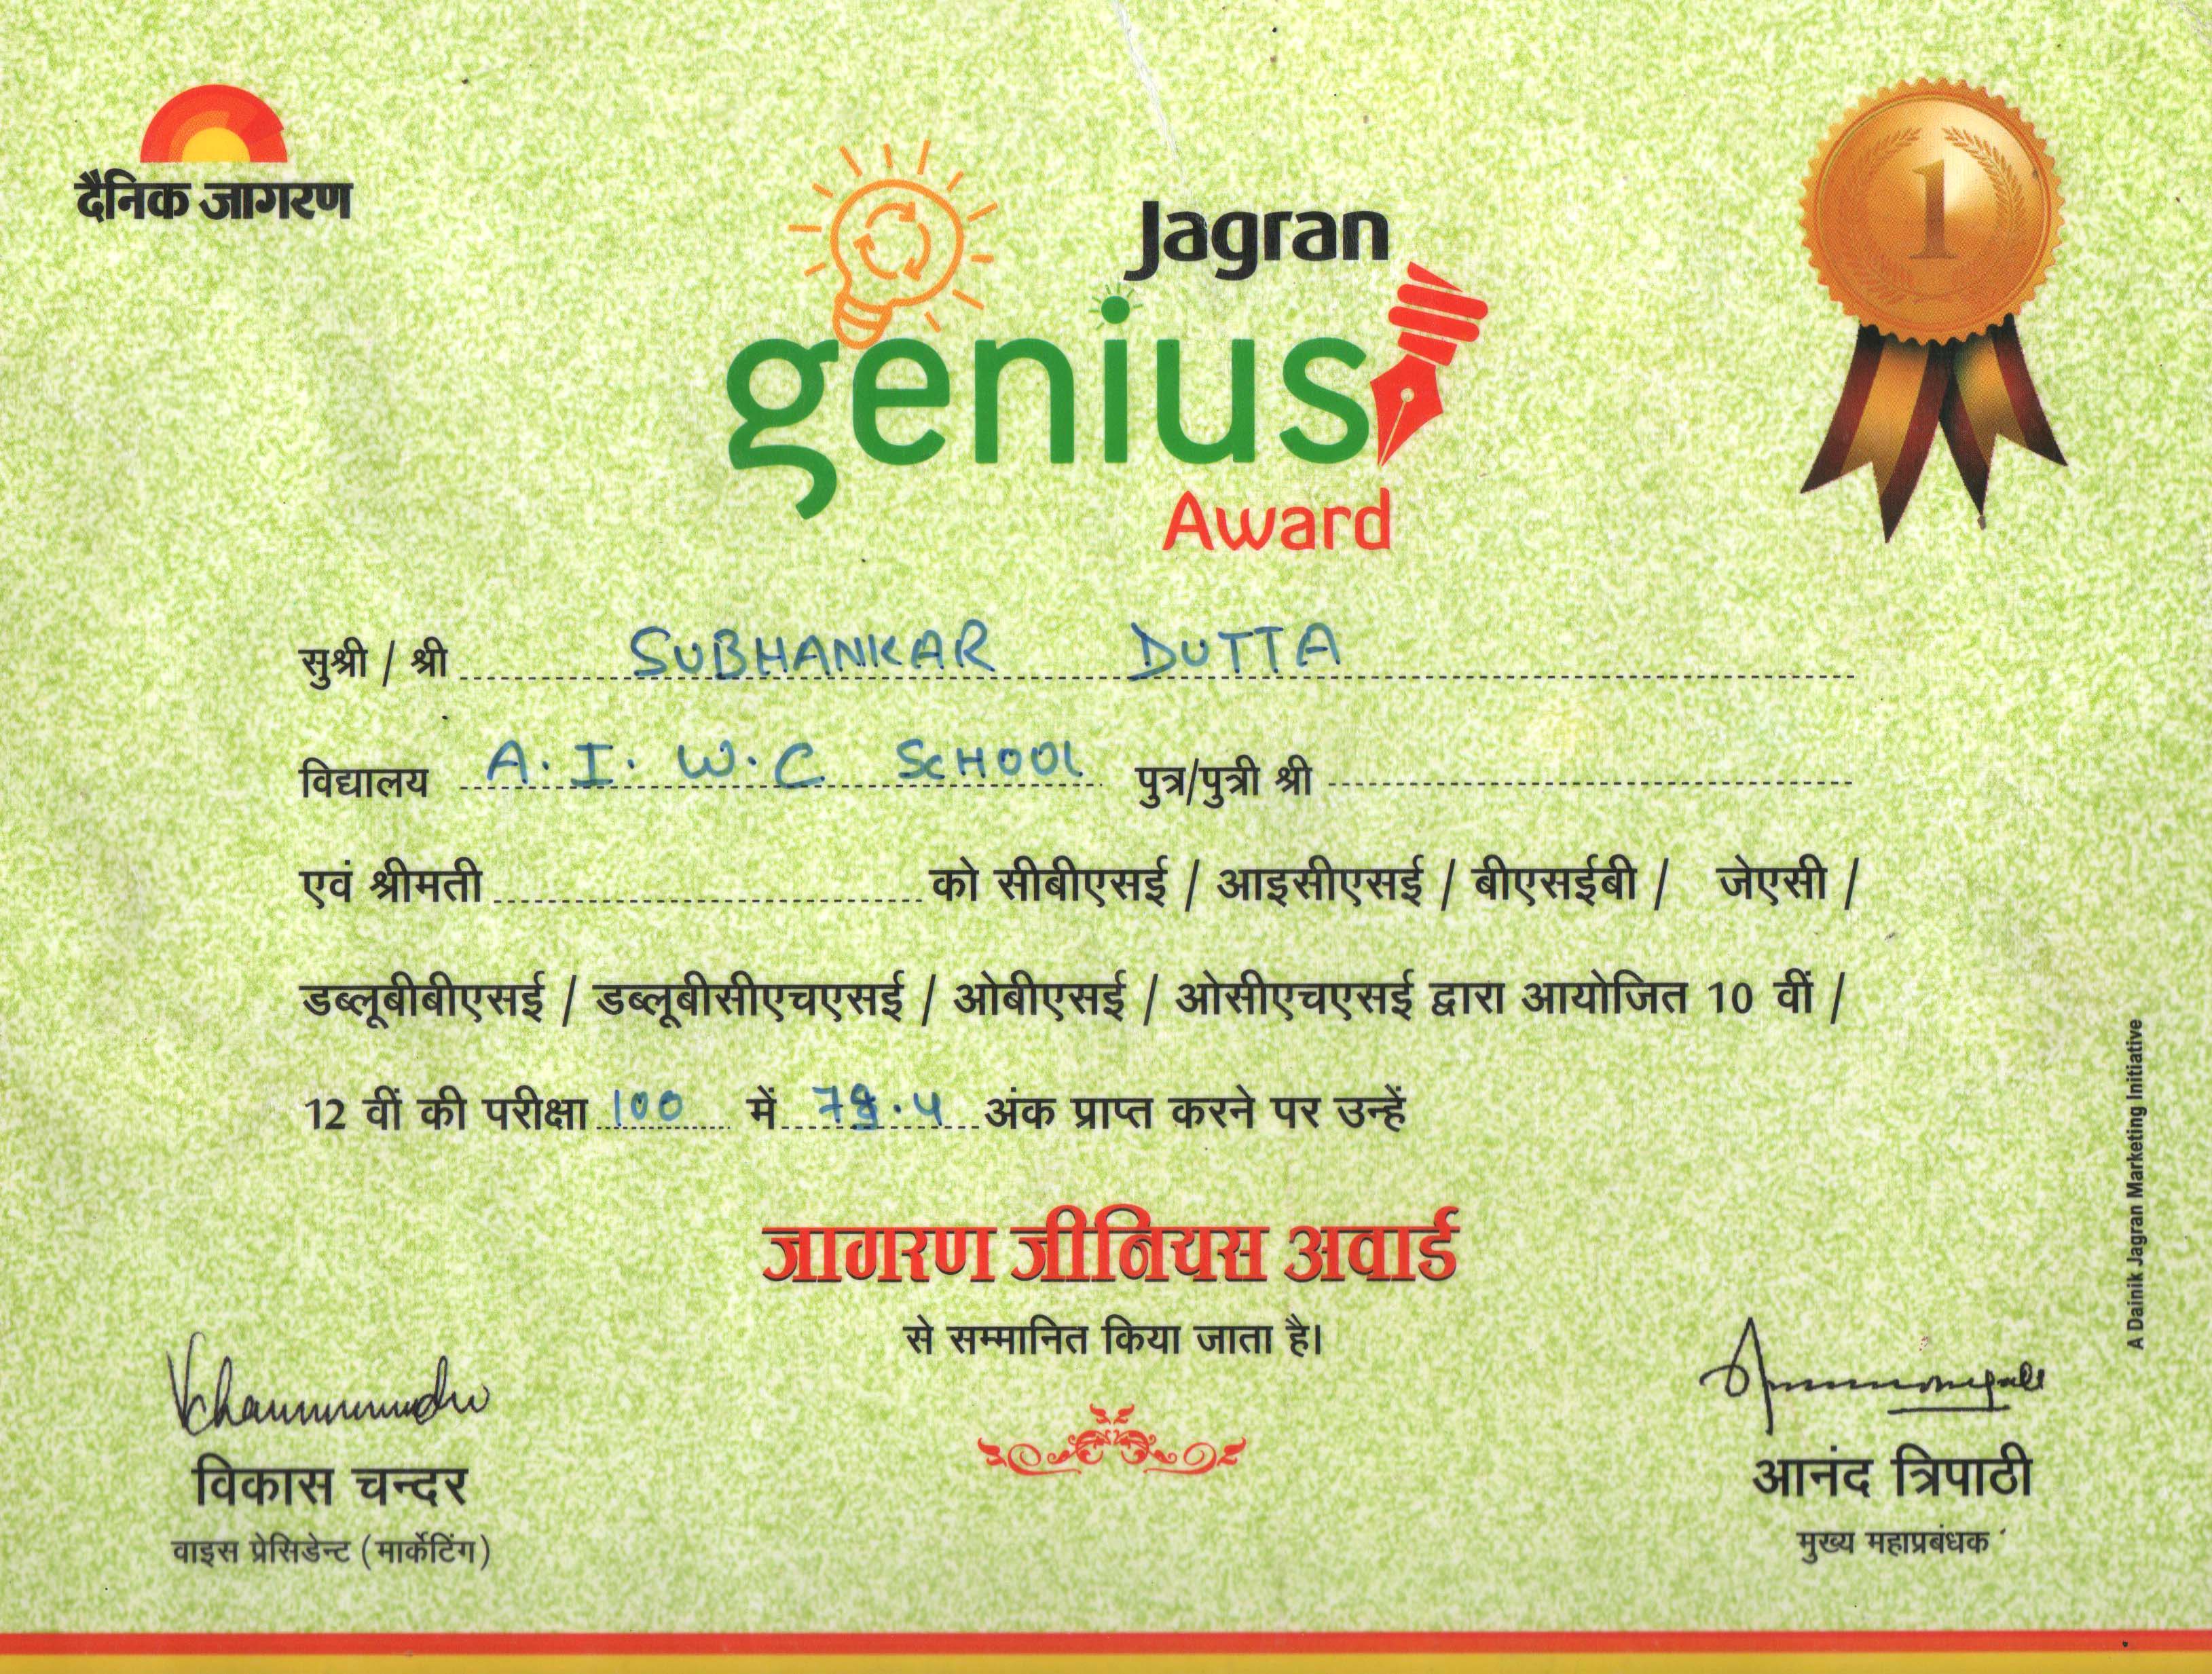 दैनिक जागरण
1
Jagran
genius
Award
सुश्री / श्री SUBHANKAR DUTTA
विद्यालय A.I.W.C SCHOOL पुत्र/पुत्री श्री
एवं श्रीमती को सीबीएसई / आइसीएसई / बीएसईबी / जेएसी /
डब्लूबीबीएसई / डब्लूबीसीएचएसई / ओबीएसई / ओसीएचएसई द्वारा आयोजित 10 वीं /
12 वीं की परीक्षा 100 में अंक प्राप्त करने पर उन्हें
जागरण जीनियस अवार्ड
से सम्मानित किया जाता है।
विकास चन्दर
वाइस प्रेसिडेन्ट (मार्केटिंग)
आनंद त्रिपाठी
मुख्य महाप्रबंधक
A Dainik Jagran Marketing Initiative